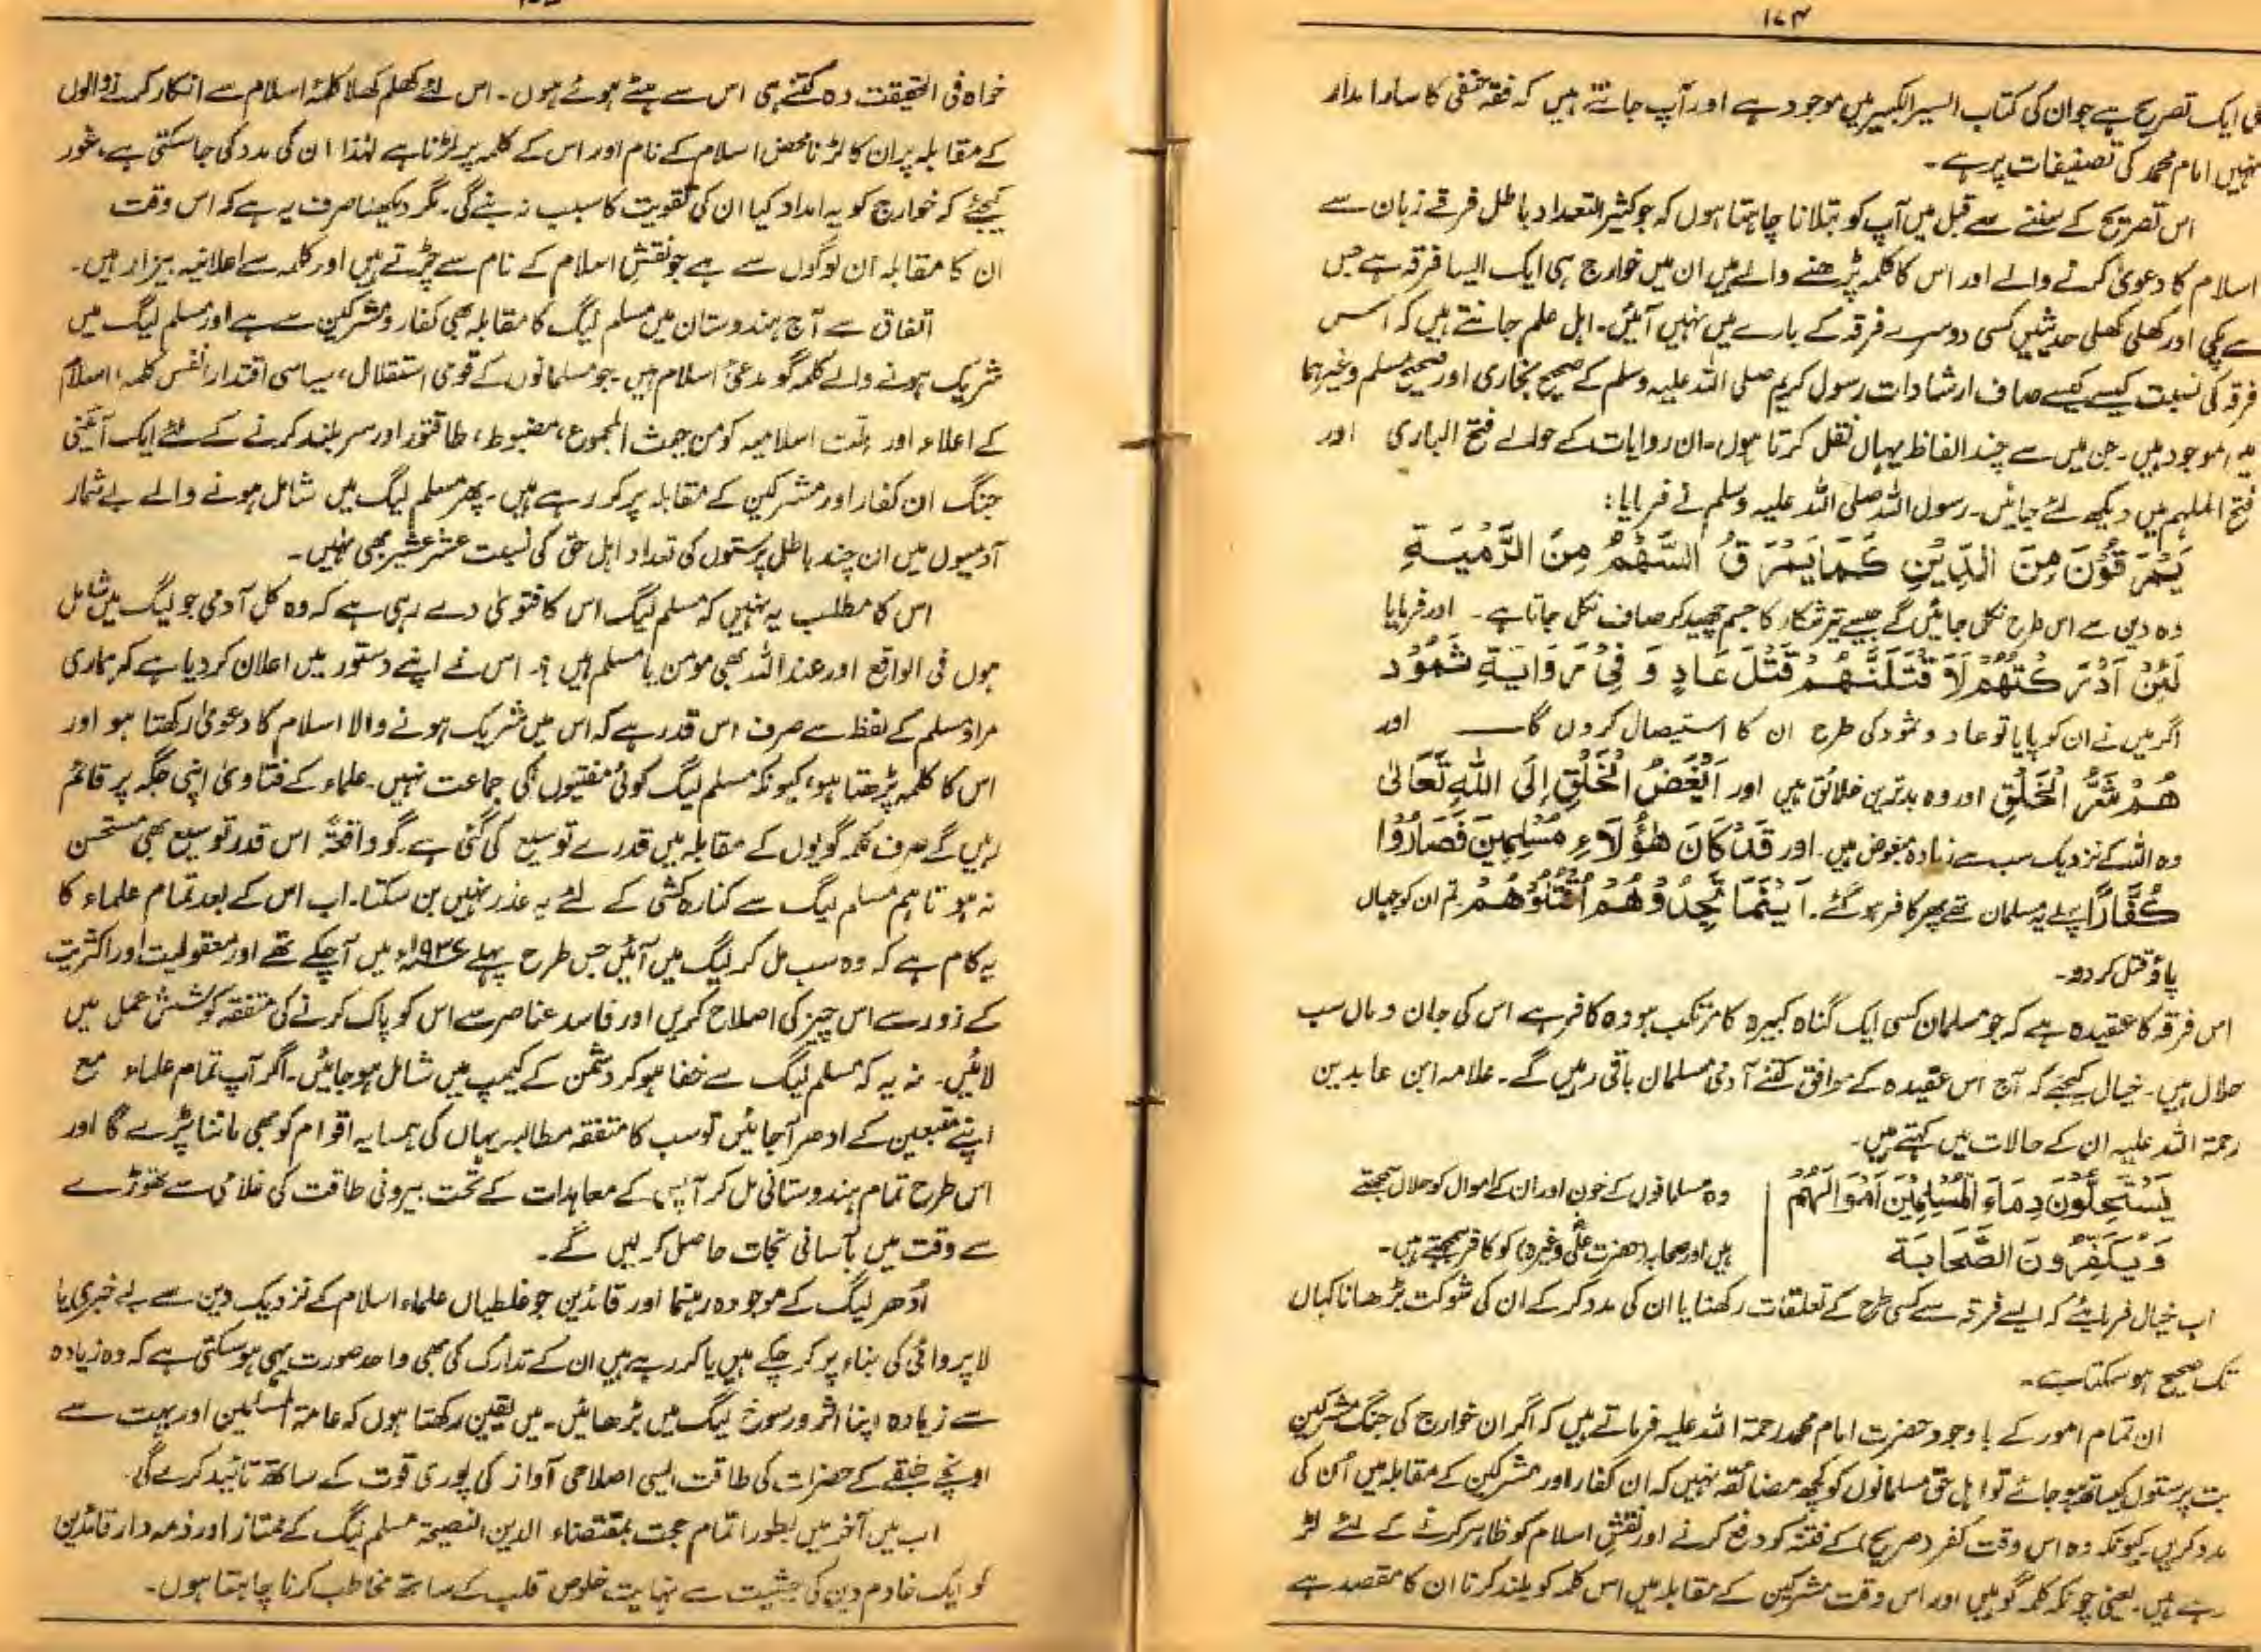 ۱۷۴
کی ایک تصریح ہے جو ان کی کتاب السیر الکبیر میں موجود ہے اور آپ جانتے ہیں کہ فقہ حنفی کا سارا مدار
انہیں امام محمد کی تصنیفات پر ہے۔
اس تصریح کے سننے سے قبل میں آپ کو بتلانا چاہتا ہوں کہ جو کثیر التعداد باطل فرقے زبان سے
اسلام کا دعویٰ کرنے والے اور اس کا کلمہ پڑھنے والے ہیں ان میں خوارج ہی ایک ایسا فرقہ ہے جس
سے پکی اور کھلی کھلی حدیثیں کسی دوسرے فرقہ کے بارے میں نہیں آئیں۔ اہل علم جانتے ہیں کہ اس
فرقہ کی نسبت کیسے کیسے صاف ارشادات رسول کریم صلی اللہ علیہ وسلم کے صحیح بخاری اور صحیح مسلم وغیرہما
میں موجود ہیں۔ جن میں سے چند الفاظ یہاں نقل کرتا ہوں۔ ان روایات کے حوالے فتح الباری اور
فتح الملہم میں دیکھ لئے جائیں۔ رسول اللہ صلی اللہ علیہ وسلم نے فرمایا:
یَمْرَقُوْنَ مِنَ الدِّیْنِ کَمَا یَمْرَقُ السَّهْمُ مِنَ الرَّمْیَةِ
وہ دین سے اس طرح نکل جائیں گے جیسے تیر شکار کا جسم چھید کر صاف نکل جاتا ہے۔ اور فرمایا
لَئِنْ اَدْرَکْتُهُمْ لَاَقْتُلَنَّهُمْ قَتْلَ عَادٍ وَ فِیْ رِوَایَةٍ ثَمُوْد
اگر میں نے ان کو پایا تو عاد و ثمود کی طرح ان کا استیصال کروں گا — اور
هُمْ شَرُّ الْخَلْقِ اور وہ بدترین خلائق ہیں اور اَبْغَضُ الْخَلْقِ اِلَی اللهِ تَعَالیٰ
وہ اللہ کے نزدیک سب سے زیادہ مبغوض ہیں۔ اور قَدْ کَانَ هٰؤُلَاءِ مُسْلِمِیْنَ فَصَارُوْا
کُفَّارًا پہلے یہ مسلمان تھے پھر کافر ہو گئے۔ اَیْنَمَا تَجِدُوْهُمْ اُقْتُلُوْهُمْ تم ان کو جہاں
پاؤ قتل کر دو۔
اس فرقہ کا عقیدہ ہے کہ جو مسلمان کسی ایک گناہ کبیرہ کا مرتکب ہو وہ کافر ہے اس کی جان و مال سب
حلال ہیں۔ خیال کیجئے کہ آج اس عقیدہ کے موافق کتنے آدمی مسلمان باقی رہیں گے۔ علامہ ابن عابدین
رحمۃ اللہ علیہ ان کے حالات میں کہتے ہیں۔
یَسْتَحِلُّوْنَ دِمَاءَ الْمُسْلِمِیْنَ اَمْوَالَهُمْ
وَیُکَفِّرُوْنَ الصَّحَابَةَ
وہ مسلمانوں کے خون اور ان کے اموال کو حلال سمجھتے
ہیں اور صحابہ (حضرت علیؓ وغیرہ) کو کافر سمجھتے ہیں۔
اب خیال فرمایئے کہ ایسے فرقہ سے کسی طرح کے تعلقات رکھنا یا ان کی مدد کر کے ان کی شوکت بڑھانا کہاں
تک صحیح ہو سکتا ہے۔
ان تمام امور کے باوجود حضرت امام محمد رحمۃ اللہ علیہ فرماتے ہیں کہ اگر ان خوارج کی جنگ مشرکین
بت پرستوں کیساتھ ہو جائے تو اہل حق مسلمانوں کو کچھ مضائقہ نہیں کہ ان کفار اور مشرکین کے مقابلہ میں اُن کی
مدد کریں۔ کیونکہ وہ اس وقت کفر (صریح) کے فتنہ کو دفع کرنے اور نفس اسلام کو ظاہر کرنے کے لئے لڑ
رہے ہیں۔ یعنی چونکہ کلمہ گو ہیں اور اس وقت مشرکین کے مقابلہ میں اس کلمہ کو بلند کرنا ان کا مقصد ہے
خواہ فی الحقیقت وہ کتنے ہی اس سے ہٹے ہوئے ہوں۔ اس لئے کھلم کھلا کلمۂ اسلام سے انکار کرنے والوں
کے مقابلہ پر ان کا لڑنا محض اسلام کے نام اور اس کے کلمہ پر لڑنا ہے لہٰذا ان کی مدد کی جا سکتی ہے، غور
کیجئے کہ خوارج کو یہ امداد کیا ان کی تقویت کا سبب نہ بنے گی۔ مگر دیکھنا صرف یہ ہے کہ اس وقت
ان کا مقابلہ ان لوگوں سے ہے جو نفسِ اسلام کے نام سے چڑتے ہیں اور کلمہ سے اعلانیہ بیزار ہیں۔
اتفاق سے آج ہندوستان میں مسلم لیگ کا مقابلہ بھی کفار و مشرکین سے ہے اور مسلم لیگ میں
شریک ہونے والے کلمہ گو مدعیٔ اسلام ہیں۔ جو مسلمانوں کے قومی استقلال، سیاسی اقتدار، نفس کلمہ، اسلام
کے اعلاء اور ملت اسلامیہ کو من حیث المجموع، مضبوط، طاقتور اور سربلند کرنے کے لئے ایک آئینی
جنگ ان کفار اور مشرکین کے مقابلہ پر کر رہے ہیں۔ پھر مسلم لیگ میں شامل ہونے والے بے شمار
آدمیوں میں ان چند باطل پرستوں کی تعداد اہل حق کی نسبت عشر عشیر بھی نہیں۔
اس کا مطلب یہ نہیں کہ مسلم لیگ اس کا فتویٰ دے رہی ہے کہ وہ کل آدمی جو لیگ میں شامل
ہوں فی الواقع اور عند اللہ بھی مومن یا مسلم ہیں؟ اس نے اپنے دستور میں اعلان کر دیا ہے کہ ہماری
مراد مسلم کے لفظ سے صرف اس قدر ہے کہ اس میں شریک ہونے والا اسلام کا دعویٰ رکھتا ہو اور
اس کا کلمہ پڑھتا ہو، کیونکہ مسلم لیگ کوئی مفتیوں کی جماعت نہیں۔ علماء کے فتاویٰ اپنی جگہ پر قائم
رہیں گے صرف کلمہ گویوں کے مقابلہ میں قدرے توسیع کی گئی ہے۔ گو واقعۃً اس قدر توسیع بھی مستحسن
نہ ہو تاہم مسلم لیگ سے کنارہ کشی کے لئے یہ عذر نہیں بن سکتا۔ اب اس کے بعد تمام علماء کا
یہ کام ہے کہ وہ سب مل کر لیگ میں آئیں جس طرح پہلے ۱۹۳۶ء میں آ چکے تھے اور معقولیت اور اکثریت
کے زور سے اس چیز کی اصلاح کریں اور فاسد عناصر سے اس کو پاک کرنے کی متفقہ کوشش عمل میں
لائیں۔ نہ یہ کہ مسلم لیگ سے خفا ہو کر دشمن کے کیمپ میں شامل ہو جائیں۔ اگر آپ تمام علماء مع
اپنے متبعین کے ادھر آ جائیں تو سب کا متفقہ مطالبہ یہاں کی ہمسایہ اقوام کو بھی ماننا پڑے گا اور
اس طرح تمام ہندوستانی مل کر آپس کے معاہدات کے تحت بیرونی طاقت کی غلامی سے تھوڑے
سے وقت میں بآسانی نجات حاصل کر لیں گے۔
اُدھر لیگ کے موجودہ رہنما اور قائدین جو غلطیاں علماء اسلام کے نزدیک دین سے بے خبری یا
لاپروائی کی بناء پر کر چکے ہیں یا کر رہے ہیں ان کے تدارک کی بھی واحد صورت یہی ہو سکتی ہے کہ وہ زیادہ
سے زیادہ اپنا اثر و رسوخ لیگ میں بڑھائیں۔ میں یقین رکھتا ہوں کہ عامۃ المسلمین اور بہت سے
اونچے طبقے کے حضرات کی طاقت ایسی اصلاحی آواز کی پوری قوت کے ساتھ تائید کرے گی۔
اب میں آخر میں بطور اتمام حجت بمقتضاء الدین النصیحۃ مسلم لیگ کے ممتاز اور ذمہ دار قائدین
کو ایک خادم دین کی حیثیت سے نہایت خلوص قلب کے ساتھ مخاطب کرنا چاہتا ہوں۔